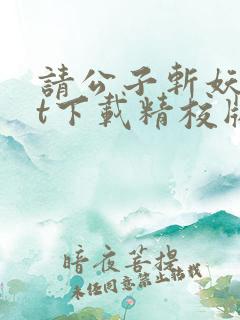 請公子斬妖
t下載精校版
暗夜菩提
未經同意禁止轉載